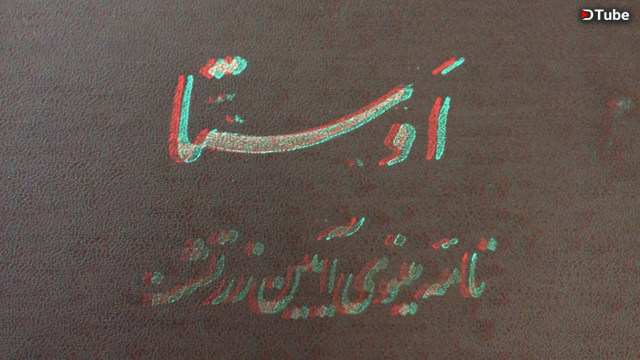 DTube
اَوستا
نامهٔ مینوی آیین زرتشت